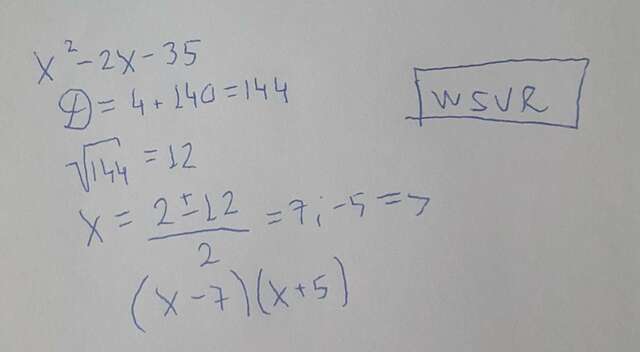 x² - 2x - 35
D = 4 + 140 = 144
√144 = 12
x = (2 ± 12) / 2 = 7; -5 =>
(x - 7)(x + 5)
WSVR